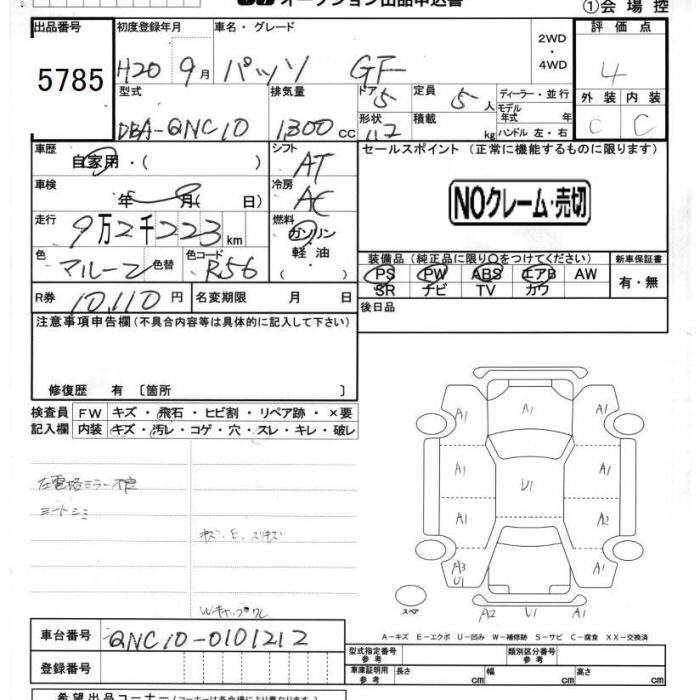 オークション出品申込書
①会場控
出品番号 初度登録年月 車名・グレード 2WD・4WD 評価点
5785 H20年 9月 パッソ GF 4
型式 排気量 ドア 5 定員 5人 ディーラー・並行 外装 内装
DBA-QNC10 1300cc 形状 積載 kg モデル年式 年 C C
ハンドル 左・右
車歴 自家用・( ) シフト AT セールスポイント (正常に機能するものに限ります)
車検 年 月( 日) 冷房 AC NOクレーム・売切
走行 9万2千223km 燃料 ガソリン
軽油
・( )
色 マルーン 色替 色コード R56 装備品(純正品に限り○をつけてください) 新車保証書
PS PW ABS エアB AW 有・無
SR ナビ TV カワ
R券 10,110円 名変期限 月 日 後日品
注意事項申告欄(不具合内容等は具体的に記入して下さい)
修復歴 有 〔箇所 〕
検査員 FW キズ・飛石・ヒビ割・リペア跡・×要
記入欄 内装 キズ・汚レ・コゲ・穴・スレ・キレ・破レ
A1 A1 A1
左電格ミラー不良 A1 A1
シートシミ U1
A1 A2
キズ.E.スリキズ
A3 A1
U1
Wキャップワレ スペア A2 U1 A1
車台番号 QNC10-0101212 A-キズ E-エクボ U-凹み W-補修跡 S-サビ C-腐食 XX-交換済
登録番号 型式指定番号 参考 類別区分番号 参考
車庫証明用 参考 長さ cm 幅 cm 高さ cm
希望出品コーナー(コーナーは各会場により